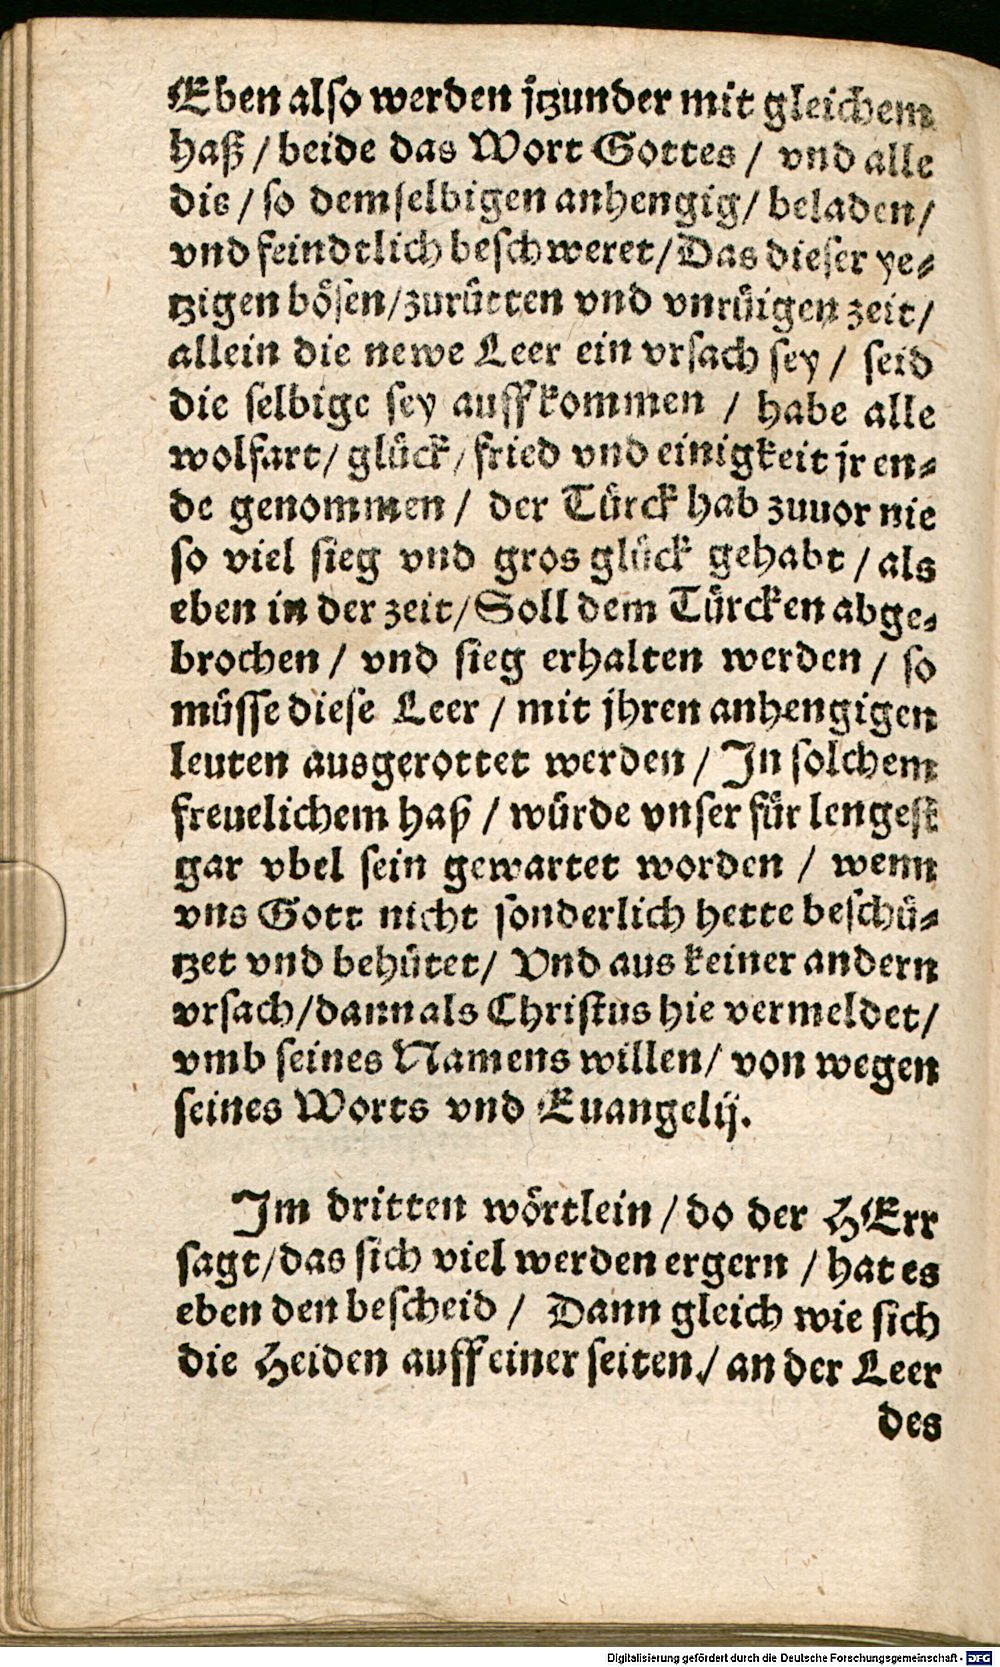 Eben also werden jtzunder mit gleichem
haß / beide das Wort Gottes / vnd alle
die / so demselbigen anhengig / beladen /
vnd feindtlich beschweret / Das dieser ye⸗
tzigen bösen / zurütten vnd vnrüigen zeit /
allein die newe Leer ein vrsach sey / seid
die selbige sey auffkommen / habe alle
wolfart / glück / fried vnd einigkeit jr en⸗
de genommen / der Türck hab zuuor nie
so viel sieg vnd gros glück gehabt / als
eben in der zeit / Soll dem Türcken abge⸗
brochen / vnd sieg erhalten werden / so
müsse diese Leer / mit jhren anhengigen
leuten ausgerottet werden / In solchem
freuelichem haß / würde vnser für lengest
gar vbel sein gewartet worden / wenn
vns Gott nicht sonderlich hette beschü⸗
tzet vnd behütet / Vnd aus keiner andern
vrsach / dann als Christus hie vermeldet /
vmb seines Namens willen / von wegen
seines Worts vnd Euangelij.
Im dritten wörtlein / do der HErr
sagt / das sich viel werden ergern / hat es
eben den bescheid / Dann gleich wie sich
die Heiden auff einer seiten / an der Leer
des
Digitalisierung gefördert durch die Deutsche Forschungsgemeinschaft - DFG